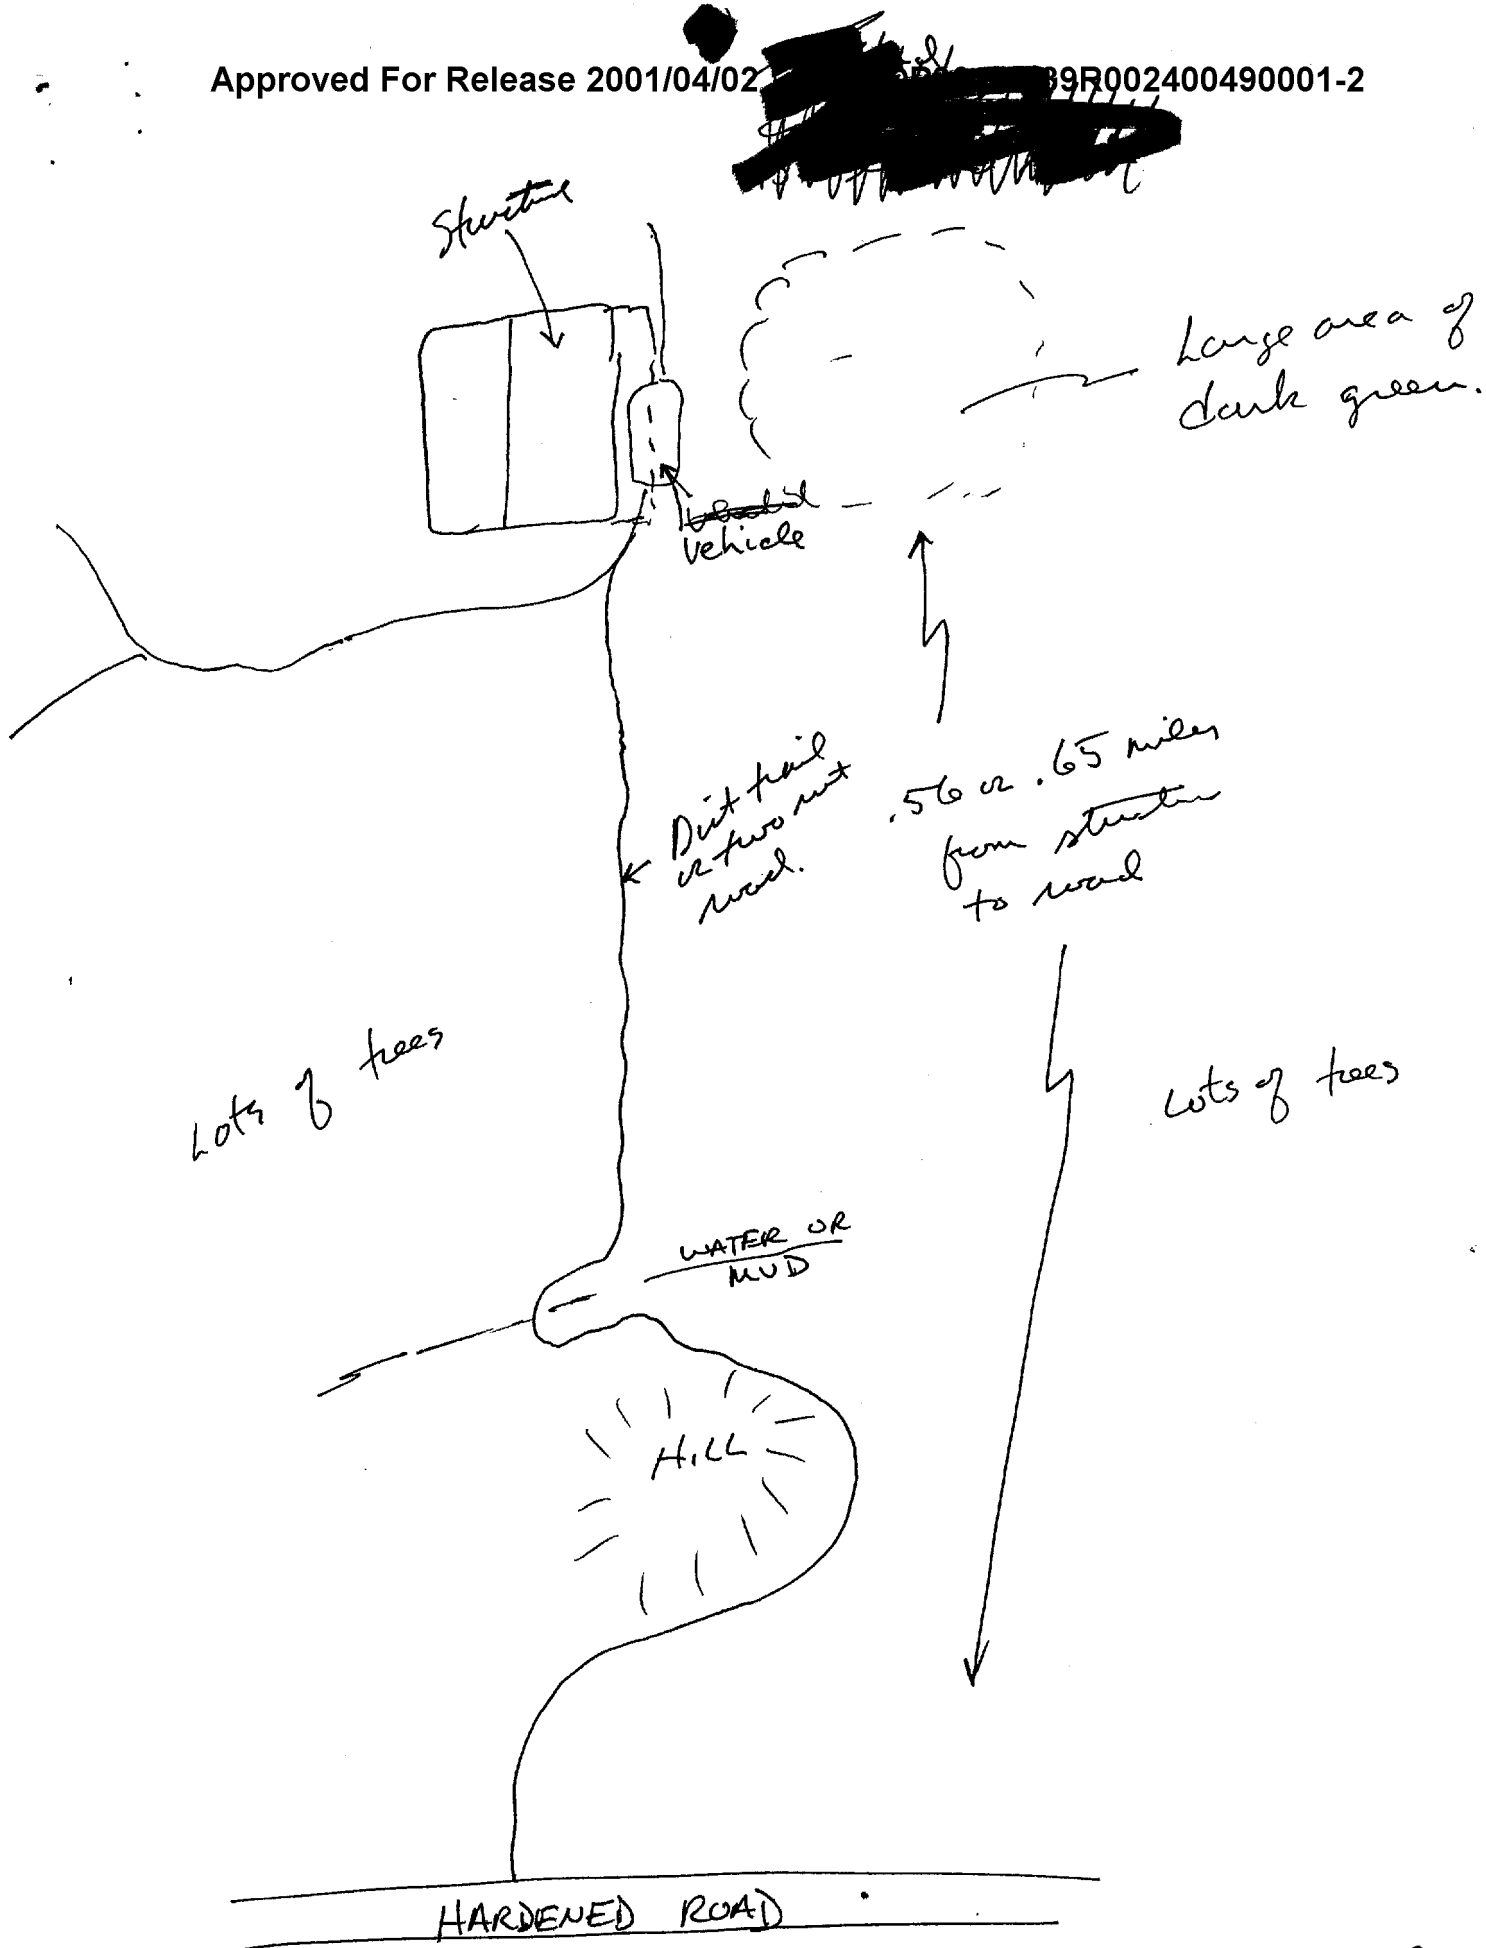 Approved For Release 2001/04/02
89R002400490001-2
Structure
Large area of
dark green.
vehicle
Dirt trail
or two rut
road.
.56 or .65 miles
from structure
to road
Lots of trees
Lots of trees
WATER OR
MUD
HILL
HARDENED ROAD